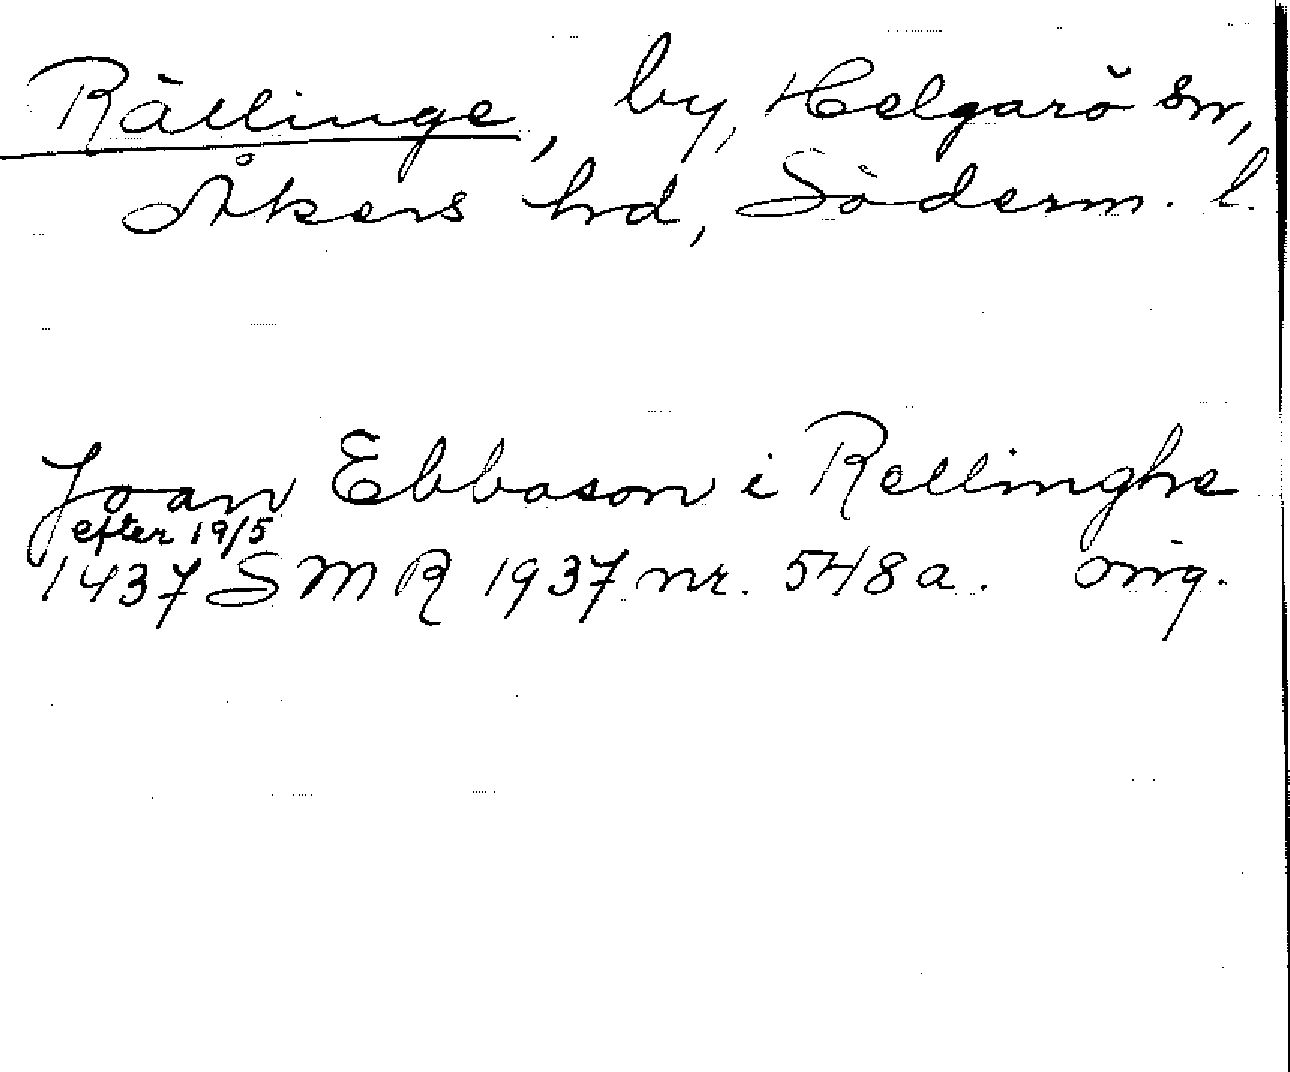 Rällinge, by, Helgarö sn,
Åkers hd, Söderm. l.
Joan Ebbason i Rellinghe
efter 19/5
1437 SMR 1937 nr. 548a. orig.